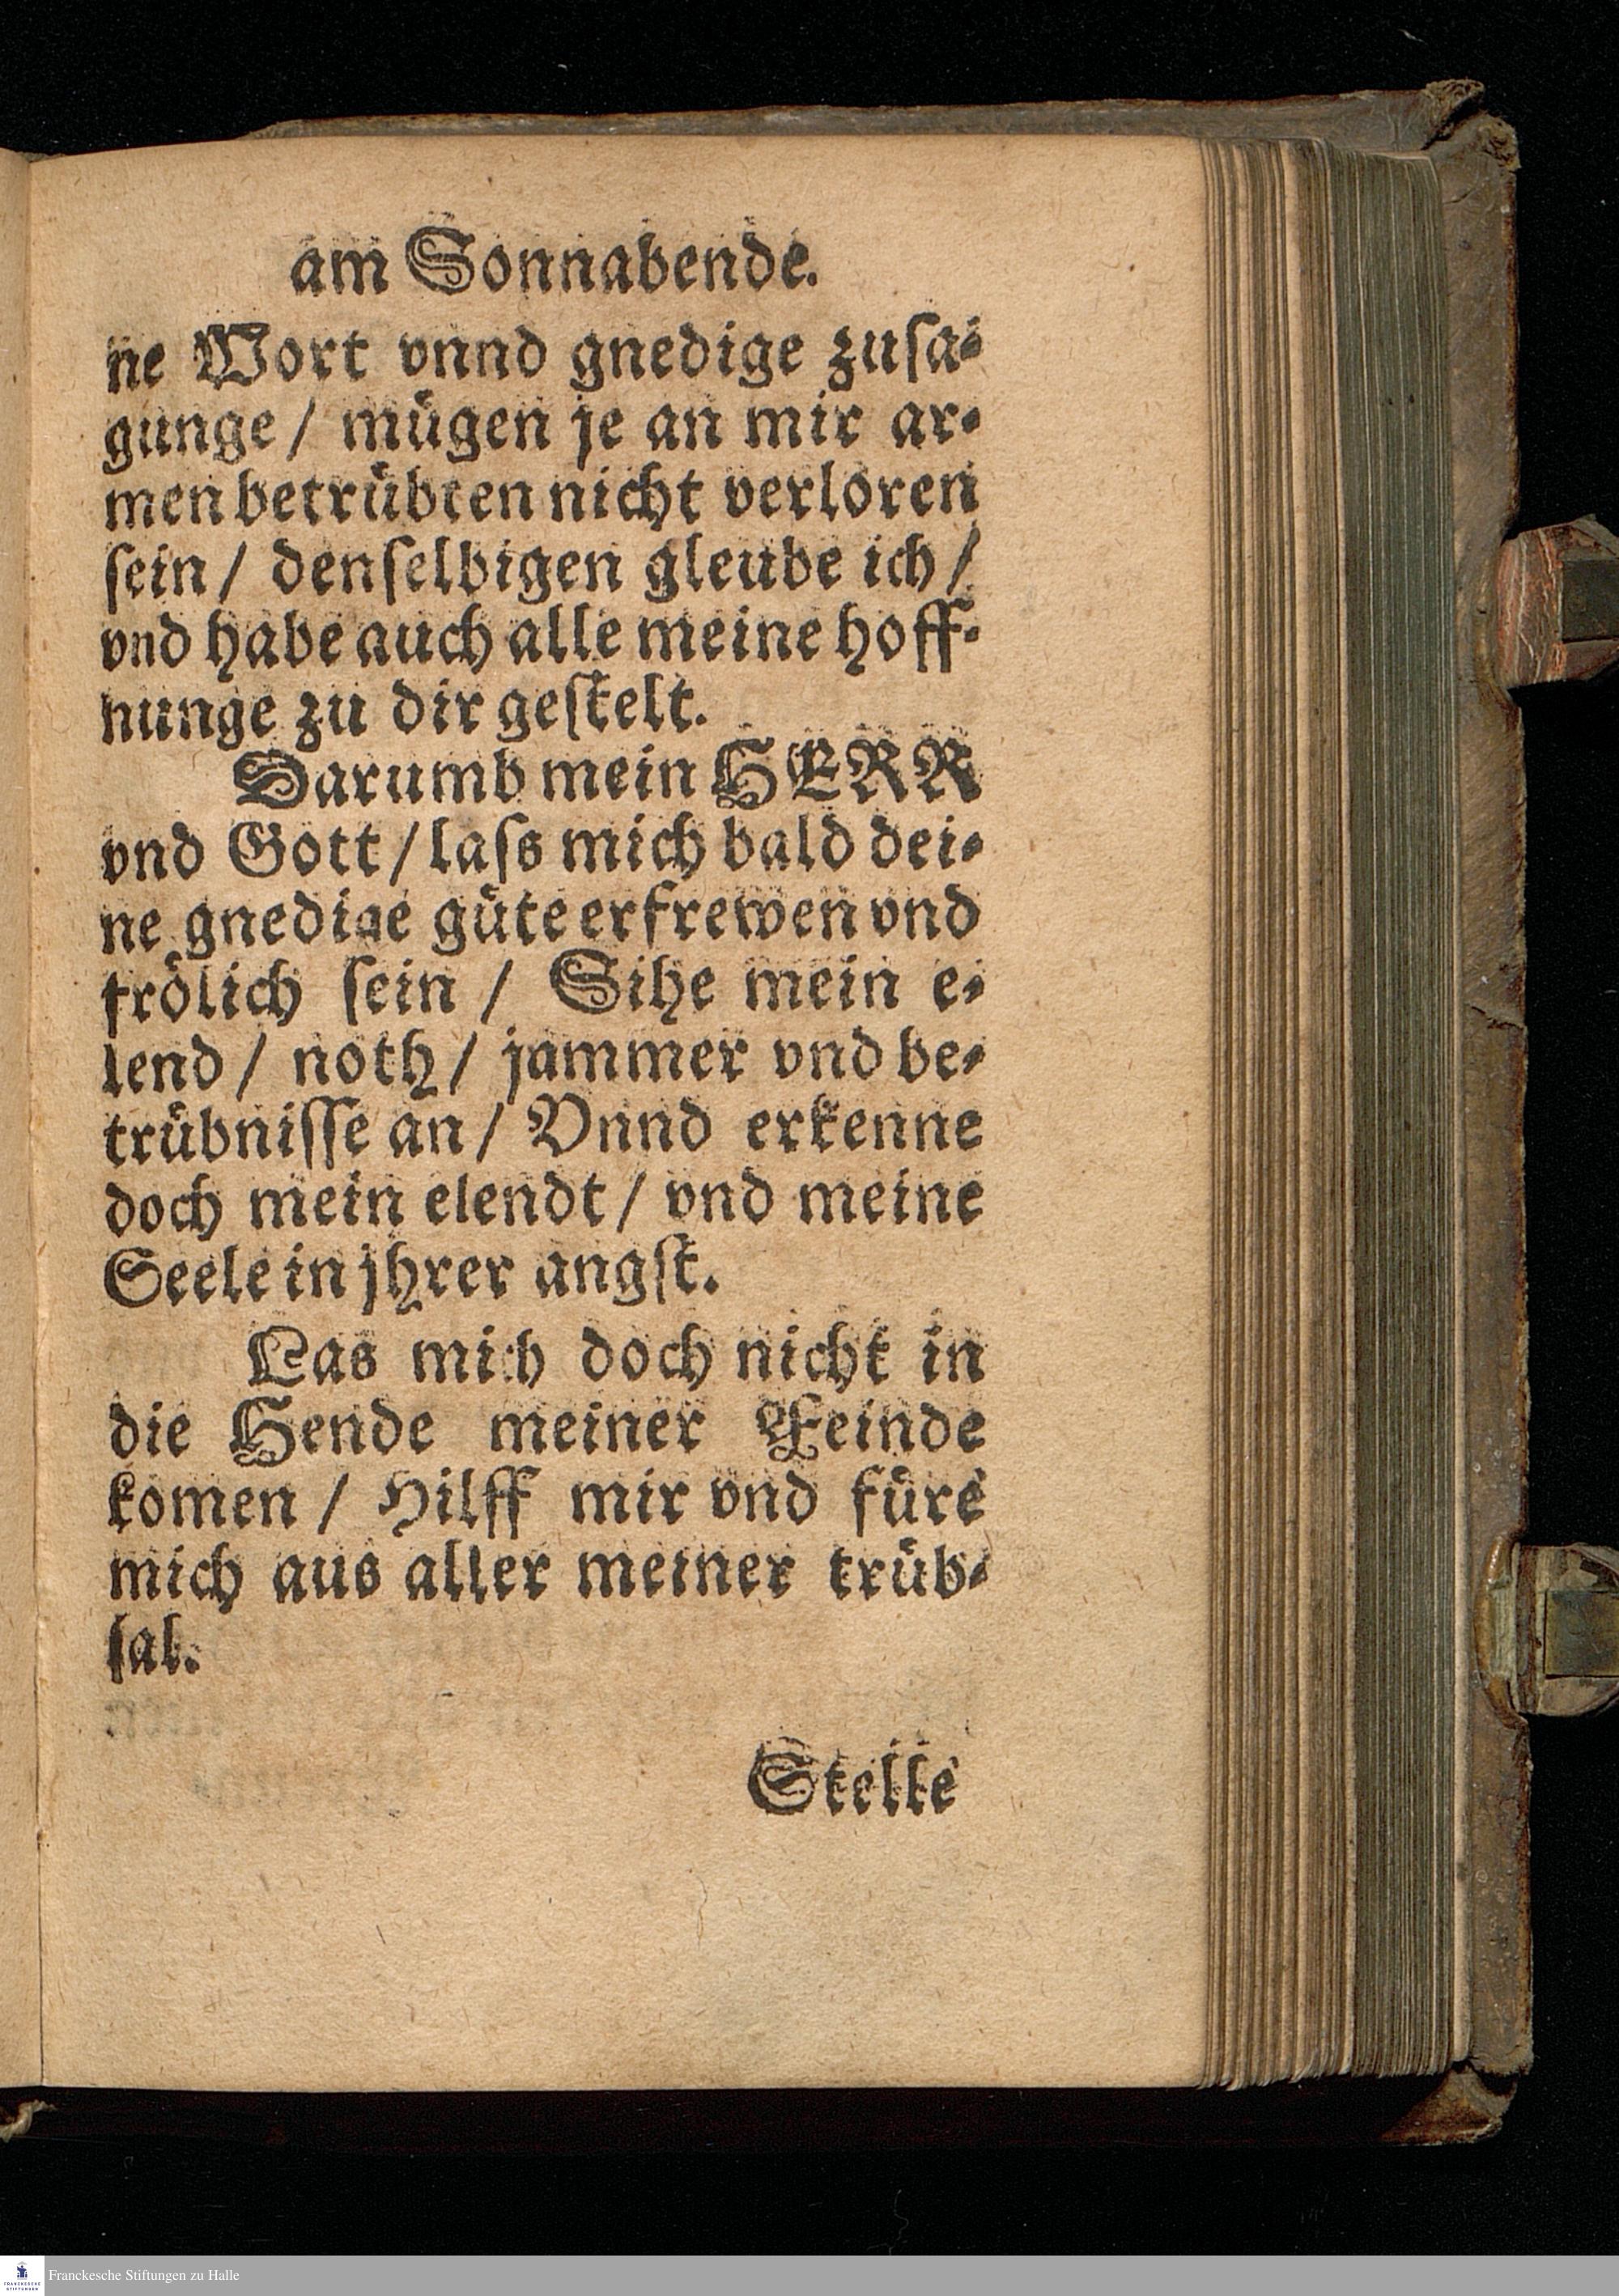 am Sonnabende.
ne Wort vnnd gnedige zuſa⸗
gunge / muͤgen je an mir ar⸗
men betruͤbten nicht verloren
ſein / denſelbigen gleube ich /
vnd habe auch alle meine hoff⸗
nunge zu dir geſtelt.
Darumb mein HERR
vnd Gott / laſs mich bald dei⸗
ne gnedige guͤte erfrewen vnd
froͤlich ſein / Sihe mein e⸗
lend / noth / jammer vnd be⸗
truͤbniſſe an / Vnnd erkenne
doch mein elendt / vnd meine
Seele in jhrer angſt.
Las mich doch nicht in
die Hende meiner Feinde
komen / Hilff mir vnd fuͤre
mich aus aller meiner truͤb⸗
ſal.
Stelle
FRANCKESCHE
STIFTUNGEN
Franckesche Stiftungen zu Halle